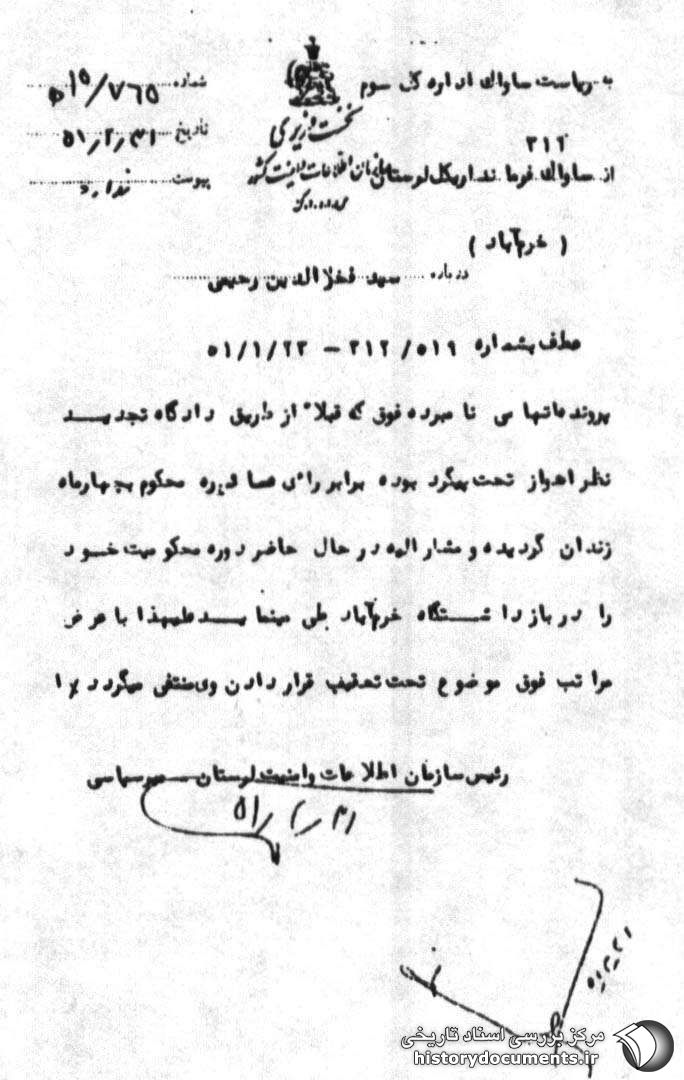 به ریاست ساواک اداره کل سوم
۳۱۲
از ساواک فرمانداریکل لرستان
( خرم‌آباد )
نخست وزیری
سازمان اطلاعات و امنیت کشور
شماره ۷۶۵/ ۱۵ﻫ
تاریخ ۵۱/۲/۳۱
پیوست ندارد
درباره سید فخرالدین رحیمی
عطف بشماره ۳۱۲/۵۱۹ – ۵۱/۱/۲۳
پرونده اتهامی نامبرده فوق که قبلاً از طریق دادگاه تجدید
نظر اهواز تحت پیگرد بوده برابر رای صادره محکوم بچهارماه
زندان گردیده و مشارالیه در حال حاضر دوره محکومیت خود
را در بازداشتگاه خرم‌آباد طی مینماید علیهذا با عرض
مراتب فوق موضوع تحت تعقیب قرار دادن وی منتفی میگردد
رئیس سازمان اطلاعات و امنیت لرستان
مرکز بررسی اسناد تاریخی
historydocuments.ir